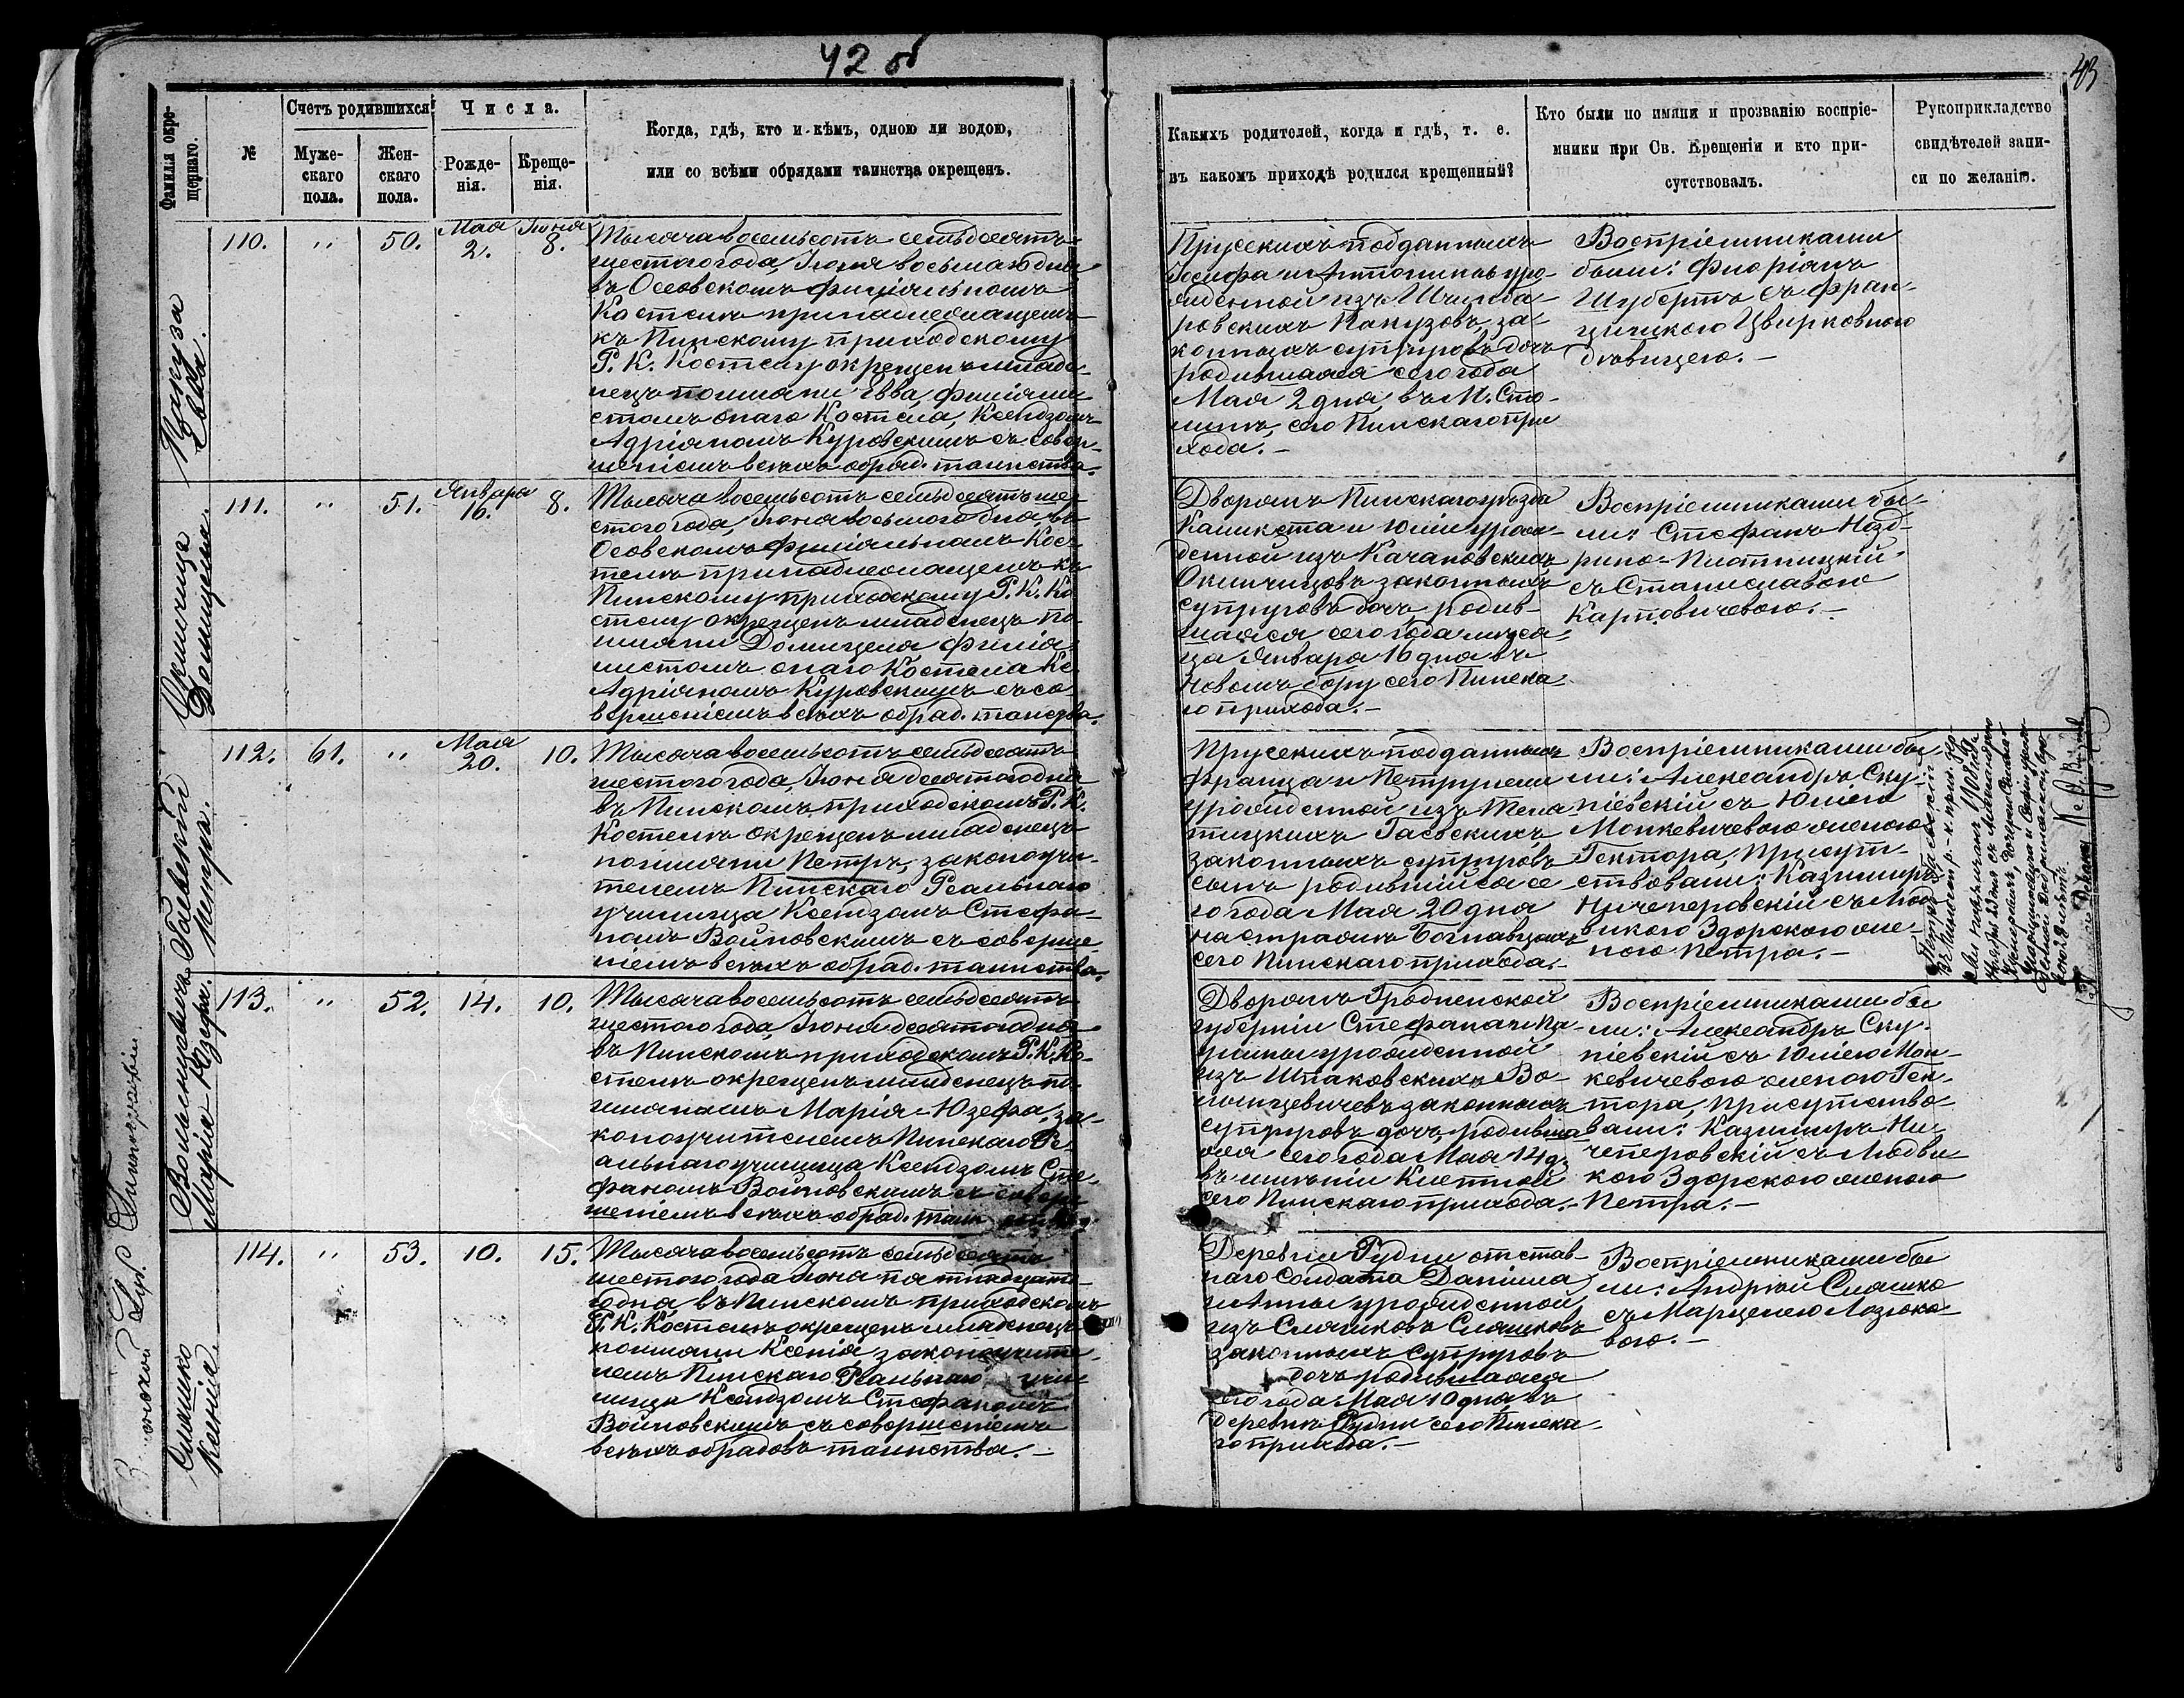 42 об
43
Фамилія окре-
щеннаго.
№
Счетъ родившихся
Муже-
скаго
пола.
Жен-
скаго
пола.
Числа.
Рожде-
нія.
Креще-
нія.
Когда, гдѣ, кто и кѣмъ, одною ли водою,
или со всѣми обрядами таинства окрещенъ.
Какихъ родителей, когда и гдѣ, т. е.
въ какомъ приходѣ родился крещенный?
Кто были по имяни и прозванію воспріе-
мники при Св. Крещеніи и кто при-
сутствовалъ.
Рукоприкладство
свидѣтелей запи-
си по желанію.
Пакуза
Евва.
110. " 50. Мая 2. Іюня 8.
Тысяча восемьсотъ семьдесятъ
шестого года, Іюня восьмаго дня
въ Осовскомъ филіяльномъ
Костелѣ принадлежащемъ
къ Пинскому приходскому
Р. К. Костелу окрещенъ младе-
нецъ по имяни Евва, филіяли-
стомъ онаго Костела, Ксендзомъ
Адріяномъ Куровскимъ съ совер-
шеніемъ всѣхъ обряд. таинства.
Прусскихъ подданныхъ
Іосифа и Антонины уро-
жденной изъ
ровскихъ Пакузовъ, за-
конныхъ супруговъ дочь
родившаяся сего года
Мая 2 дня, въ М. Сто-
линѣ, сего Пинскаго при
хода.-
Воспріемниками
были: Флоріянъ
Шубертъ съ Фран-
цишкою Цвирковною
дѣвицею.-
Домицеля.
111. " 51. Января 16. 8.
Тысяча восемьсотъ семьдесятъ ше-
стого года, Іюня восьмого дня, въ
Осовскомъ филіяльномъ Кос-
телѣ принадлежащемъ къ
Пинскому приходскому Р. К. Ко
стелу окрещенъ младенецъ по
имяни Домицеля филія-
листомъ онаго Костела Кс.
Адріяномъ Куровскимъ съ со-
вершеніемъ всѣхъ обряд. таинства.
Дворянъ Пинскаго уѣзда
Каликста и Юліи урож-
денной изъ Качановскихъ
Окинчицовъ законныхъ
супруговъ дочь, родив-
шаяся сего года мѣся-
ца Января 16 дня въ
Новомъ бору сего Пинска-
го прихода.-
Воспріемниками бы-
ли: Стефанъ Нозд-
рино-Плотницкій
съ Станиславою
Карповичевою.-
Гаевскій
Петръ.
112. 61. " Мая 20. 10.
Тысяча восемьсотъ семьдесятъ
шестого года, Іюня десятого дня
въ Пинскомъ приходскомъ Р. К.
Костелѣ окрещенъ младенецъ
по имяни Петръ, законоучи-
телемъ Пинскаго Реальнаго
училища Ксендзомъ Стефа-
номъ Войновскимъ съ соверше-
ніемъ всѣхъ обряд. таинства.
Прусскихъ подданныхъ
Франца и Петрунели
урожденной изъ Тепла-
тицкихъ Гаевскихъ,
законныхъ супруговъ
сынъ родившійся се
го года Мая 20 дня
на стражѣ
сего Пинскаго прихода.-
Воспріемниками бы-
ли: Александръ Ску-
піевскій съ Юліею
Монкевичевою женою
Гектора, Присут-
ствовали: Казимиръ
Ничеперовскій съ Люд-
викою Здорскою же-
ною Петра.-
Петръ Гаевскій
Волынцевичъ
Марія-Юзефа.
113. " 52. 14. 10.
Тысяча восемьсотъ семьдесятъ
шестого года, Іюня десятого дня
въ Пинскомъ приходскомъ Р. К. Ко-
стелѣ окрещенъ младенецъ по-
имянамъ Марія-Юзефа, за-
коноучителемъ Пинскаго Ре-
альнаго училища Ксендзомъ Сте-
фаномъ Войновскимъ съ соверше
ніемъ всѣхъ обряд. таин
Дворянъ Гродненской
губерніи Стефана и Па-
улины урожденной
изъ Шпаковскихъ Во-
лынцевичевъ законныхъ
супруговъ дочь, родивша-
яся сего года Мая 14 д.
въ имѣніи Клетной
сего Пинскаго прихода.-
Воспріемниками бы
ли: Александръ Ску-
піевскій съ Юліею Мон-
кевичевою женою Гек-
тора, Присутство-
вали: Казимиръ Ни-
чеперовскій съ Людви
кою Здорскою женою
Петра.-
Сляшко
Ксенія.
114. " 53. 10. 15.
Тысяча восемьсотъ семьдесятъ
шестого года Іюня пятнадцата-
го дня, въ Пинскомъ приходскомъ
Р. К. Костелѣ окрещенъ младенецъ
по имяни Ксенія, законоучите-
лемъ Пинскаго Реальнаго учи
лища Ксендзомъ Стефаномъ
Войновскимъ съ совершеніемъ
всѣхъ обрядовъ таинства.-
Деревни Рудни отстав-
наго солдата Даніила
и Анны урожденной
изъ Сляшковъ Сляшковъ
законныхъ супруговъ
дочь родившаяся
сего года Мая 10 дня въ
деревнѣ Рудни сего Пинска-
го прихода.-
Воспріемниками бы
ли: Андрей Сляшко
съ Марцелею Лозюко-
вою.-